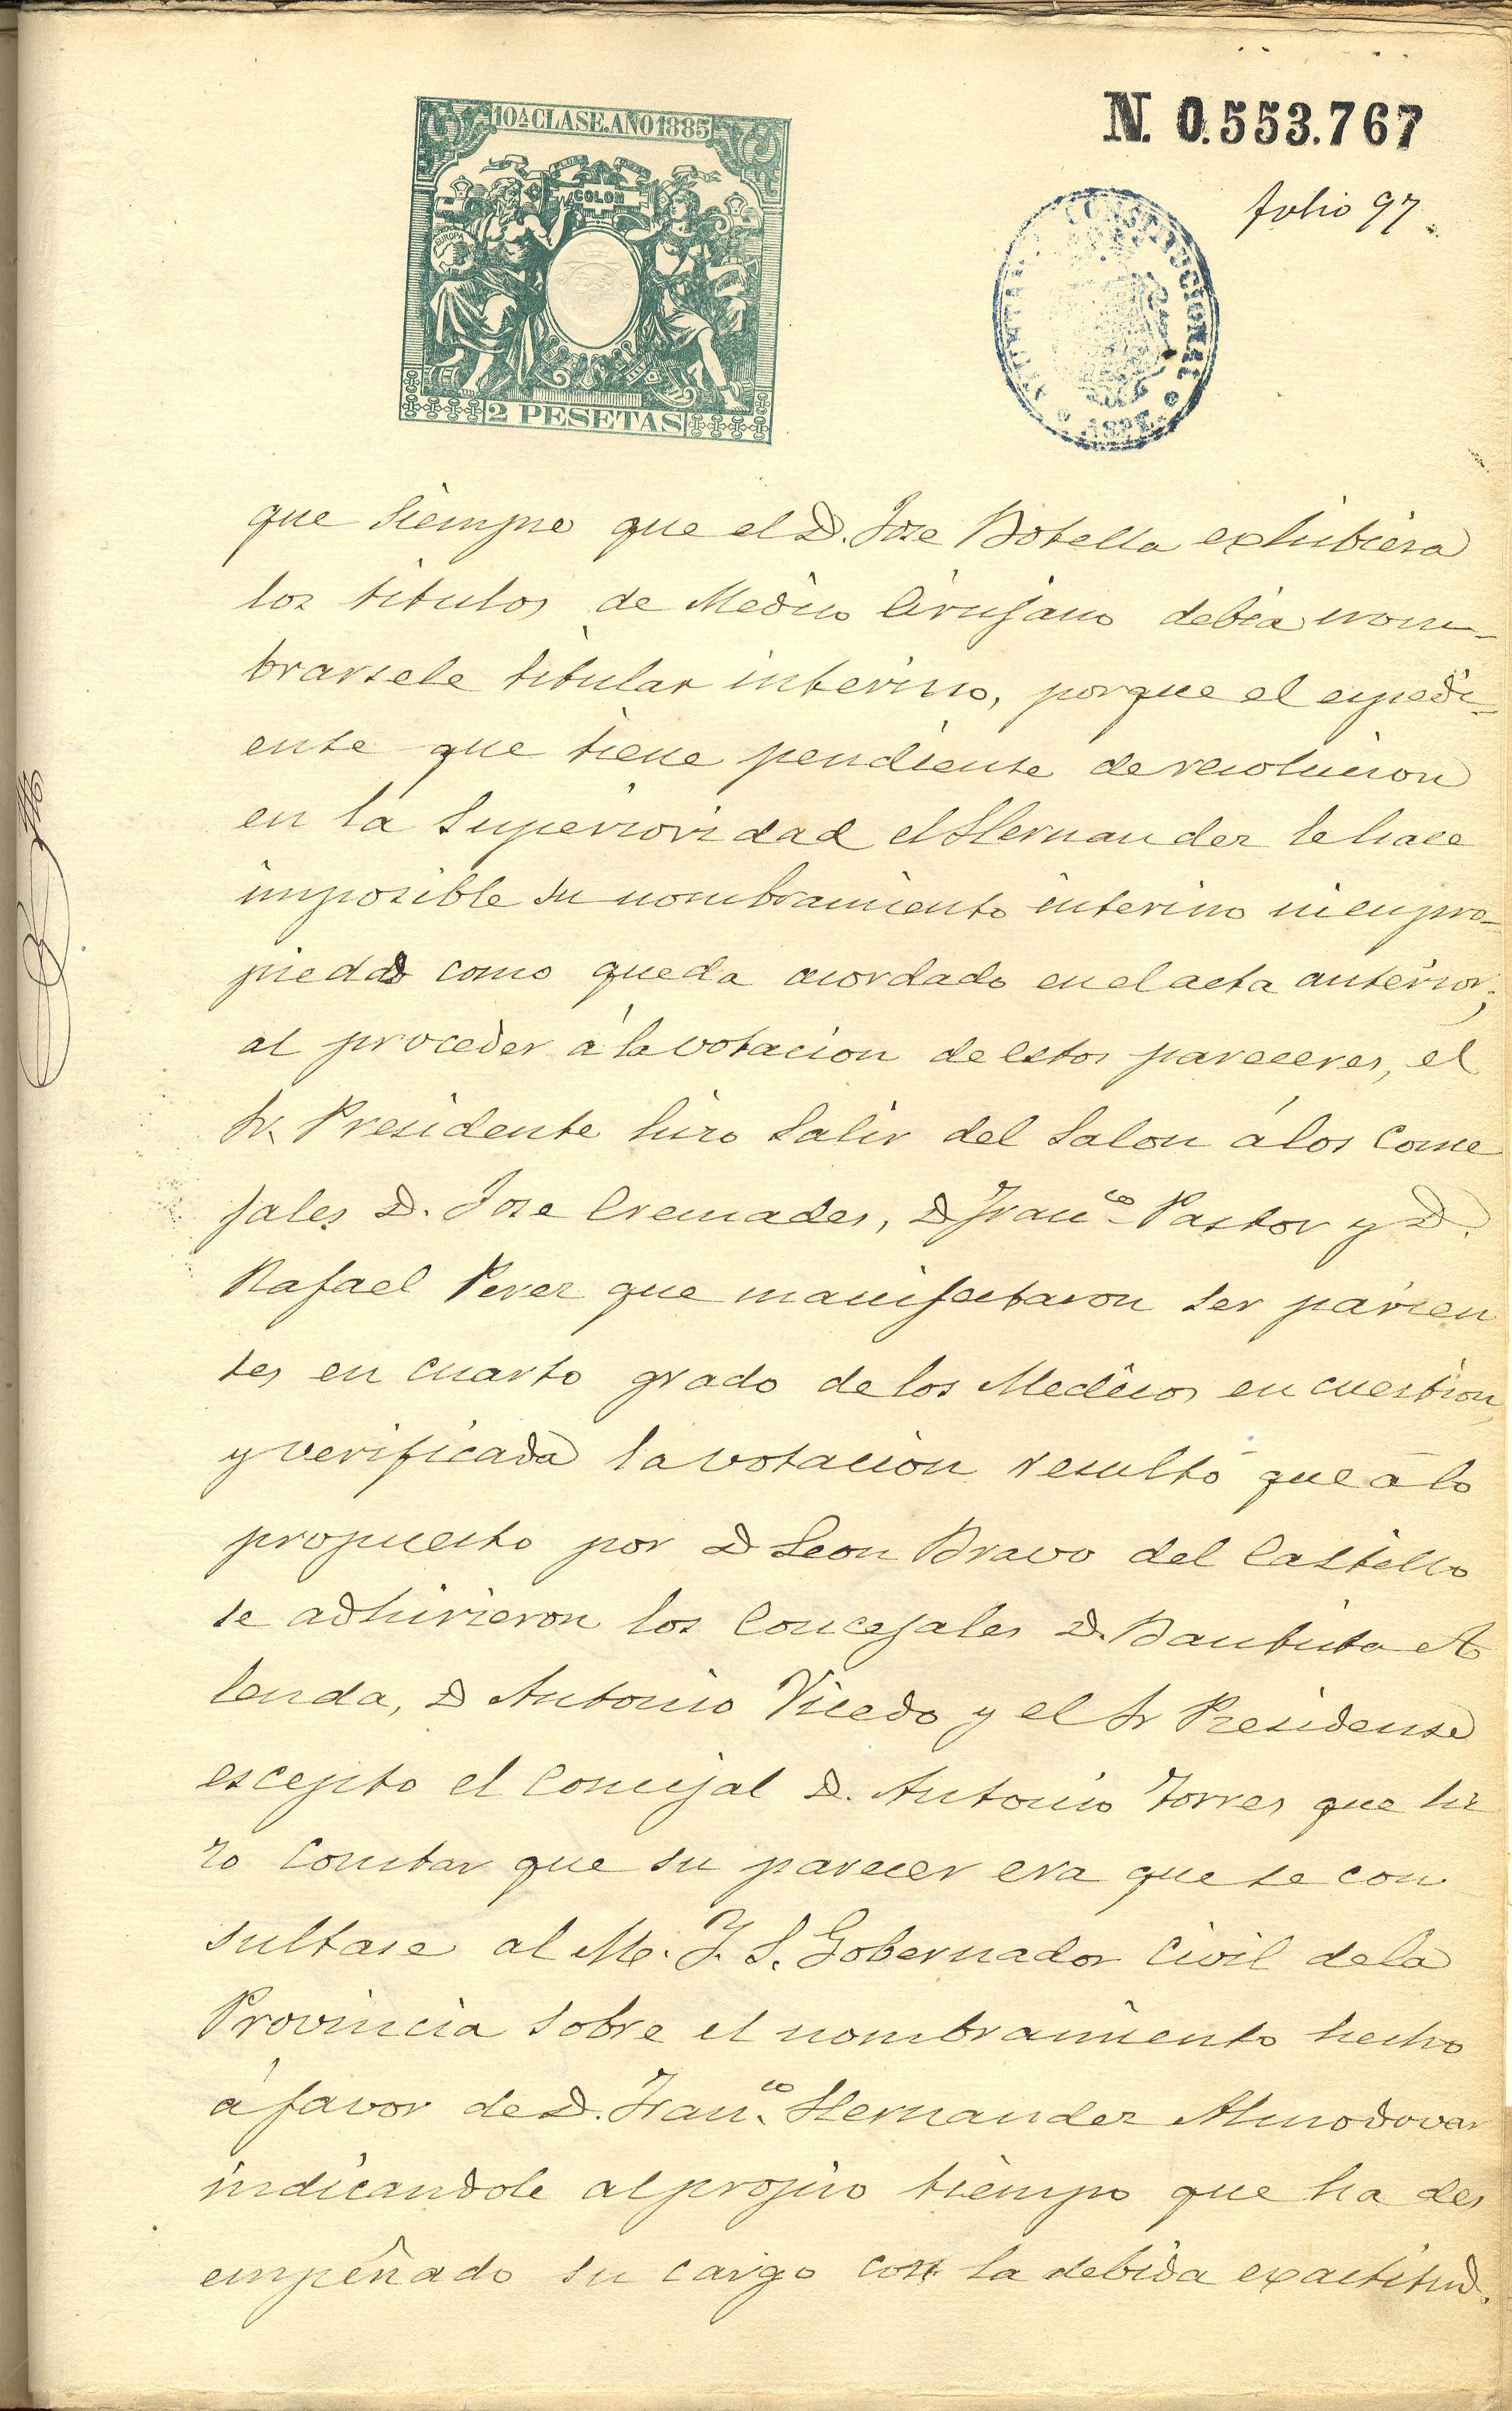 10ª CLASE. AÑO 1885
N. 0.553.767
folio 97.
COLON
EUROPA
CONSTITUCIONAL
ASPE
2 PESETAS
que siempre que el D. Jose Botella exhibiera
los titulos de Medico Cirujano debia nom-
brarsele titular interino, porque el espedi-
ente que tiene pendiente de resolucion
en la Superioridad el Hernandez le hace
imposible su nombramiento interino ni en pro-
piedad como queda acordado en el acta anterior;
al proceder á la votacion de estos pareceres, el
Sr. Presidente hizo salir del Salon á los Conce
jales D. Jose Cremades, D Franco. Pastor y D.
Rafael Perez que manifestaron ser parien
tes en cuarto grado de los Medicos en cuestion,
y verificada la votacion resultó que á lo
propuesto por D Leon Bravo del Castillo
se adhirieron los Concejales D. Bautista A
lenda, D Antonio Vicedo y el Sr Presidente
escepto el Concejal D. Antonio Torres que hi
zo constar que su parecer era que se con
sultase al M. Y. S. Gobernador Civil de la
Provincia sobre el nombramiento hecho
á favor de D. Franco. Hernandez Almodovar
indicandole al propio tiempo que ha des
empeñado su cargo con la debida exactitud.